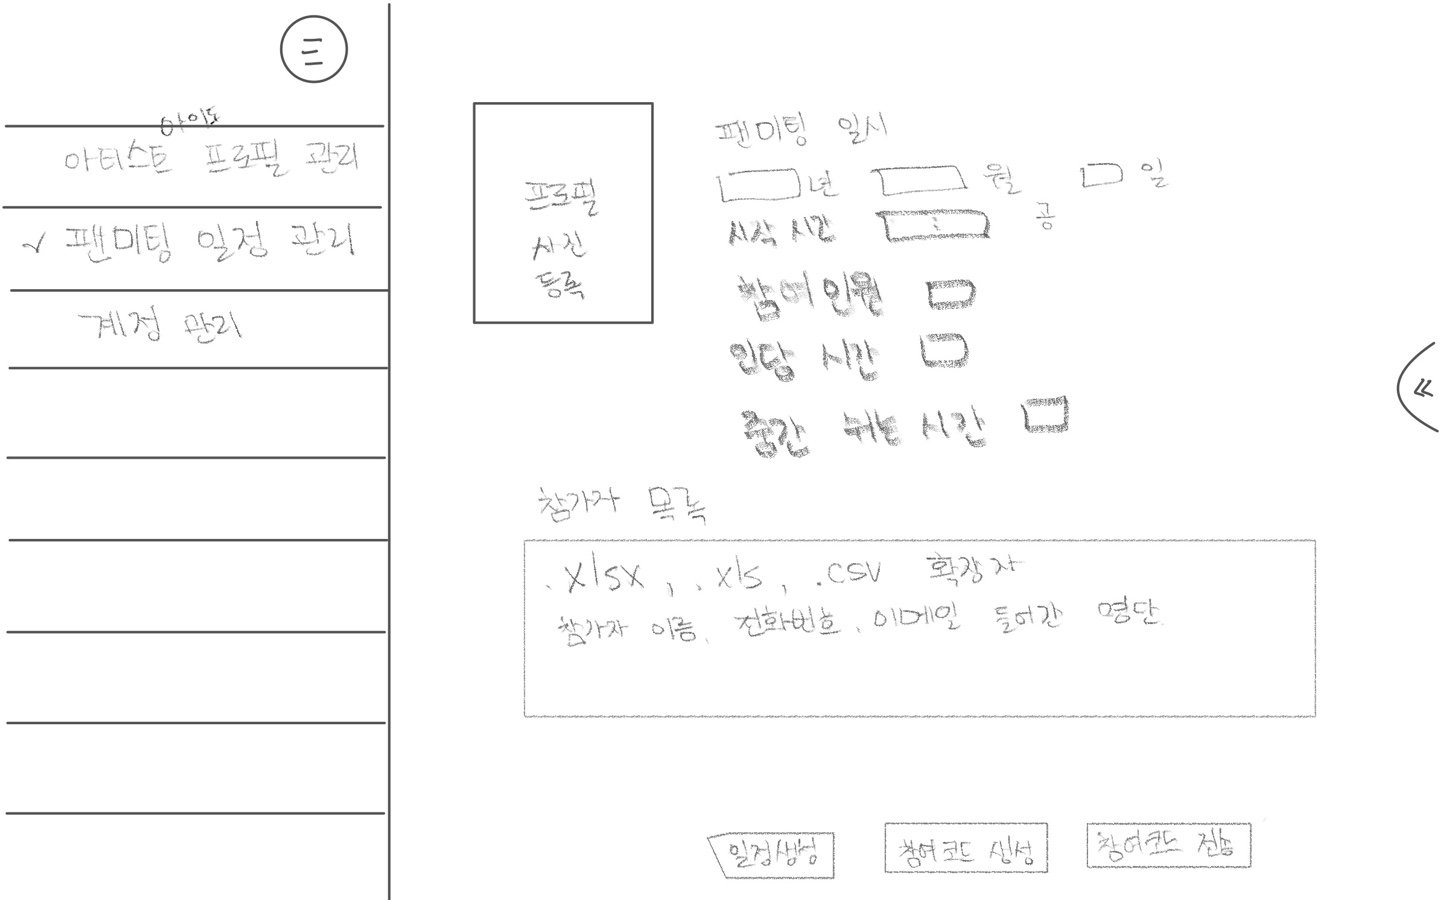 아이돌
아티스트 프로필 관리
✓ 팬미팅 일정 관리
계정 관리
프로필
사진
등록
팬미팅 일시
년 월 일
공
시작 시간 :
참여 인원
인당 시간
중간 쉬는 시간
«
참가자 목록
.xlsx, .xls, .csv 확장자
참가자 이름, 전화번호, 이메일 들어간 명단
일정생성
참여코드 생성
참여코드 전송